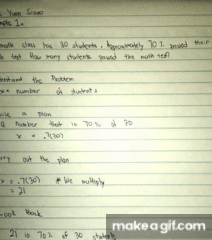 Yuen
1.
math class has 30 students. Approximately 70% passed their
test How many students passed the math test?
the Problem
x = number of students
a plan
a number that is 70% of 30
x = .7(30)
out the plan
x = .7(30) * We multiply
= 21
Look Back
21 is 70% of 30 students
makeagif.com